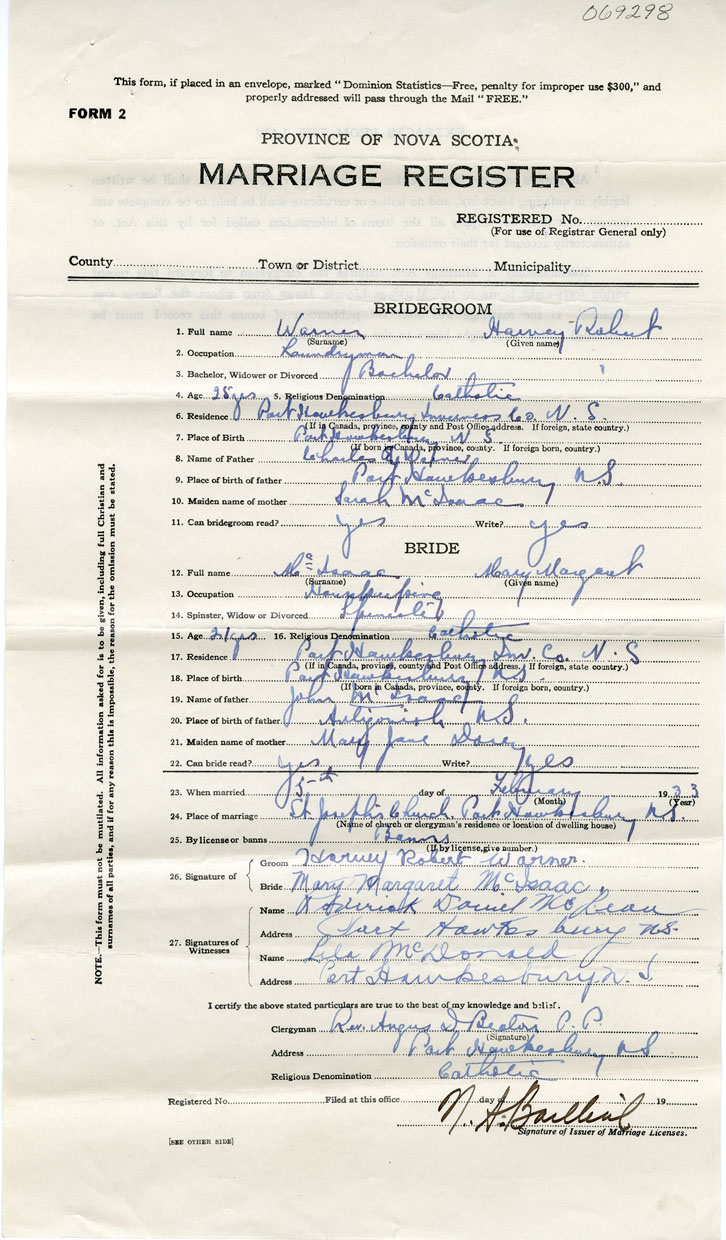 069298
This form, if placed in an envelope, marked "Dominion Statistics—Free, penalty for improper use $300," and
properly addressed will pass through the Mail "FREE."
FORM 2
PROVINCE OF NOVA SCOTIA
MARRIAGE REGISTER
REGISTERED No.
(For use of Registrar General only)
County Town or District Municipality
BRIDEGROOM
1. Full name Warner Harvey Robert
(Surname) (Given name)
2. Occupation Laundryman
3. Bachelor, Widower or Divorced Bachelor
4. Age 25 yrs 5. Religious Denomination Catholic
6. Residence Port Hawkesbury Inverness Co. N. S.
(If in Canada, province, county and Post Office address. If foreign, state country.)
7. Place of Birth Port Hawkesbury N. S.
(If born in Canada, province, county. If foreign born, country.)
8. Name of Father Charles Warner
9. Place of birth of father Port Hawkesbury N.S.
10. Maiden name of mother Sarah McIsaac
11. Can bridegroom read? yes Write? yes
BRIDE
12. Full name McIsaac Mary Margaret
(Surname) (Given name)
13. Occupation Housekeeping
14. Spinster, Widow or Divorced Spinster
15. Age 21 yrs 16. Religious Denomination Catholic
17. Residence Port Hawkesbury Inv. Co. N. S
(If in Canada, province, county and Post Office address. If foreign, state country.)
18. Place of birth Port Hawkesbury N.S.
(If born in Canada, province, county. If foreign born, country.)
19. Name of father John McIsaac
20. Place of birth of father Antigonish N.S.
21. Maiden name of mother Mary Jane
22. Can bride read? yes Write? yes
23. When married 5th day of February 1933
(Month) (Year)
24. Place of marriage St Joseph's Church, Port Hawkesbury N.S.
(Name of church or clergyman's residence or location of dwelling house)
25. By license or banns Banns
(If by license, give number.)
26. Signature of
Groom Harvey Robert Warner.
Bride Mary Margaret McIsaac.
27. Signatures of Witnesses
Name Daniel McLean
Address Port Hawkesbury N.S.
Name Lila McDonald
Address Port Hawkesbury N. S
I certify the above stated particulars are true to the best of my knowledge and belief.
Clergyman Rev. Angus D Beaton P. P.
(Signature)
Address Port Hawkesbury N S
Religious Denomination Catholic
Registered No. Filed at this office day of 19
N. A.
Signature of Issuer of Marriage Licenses.
[SEE OTHER SIDE]
NOTE.—This form must not be mutilated. All information asked for is to be given, including full Christian and
surnames of all parties, and if for any reason this is impossible, the reason for the omission must be stated.